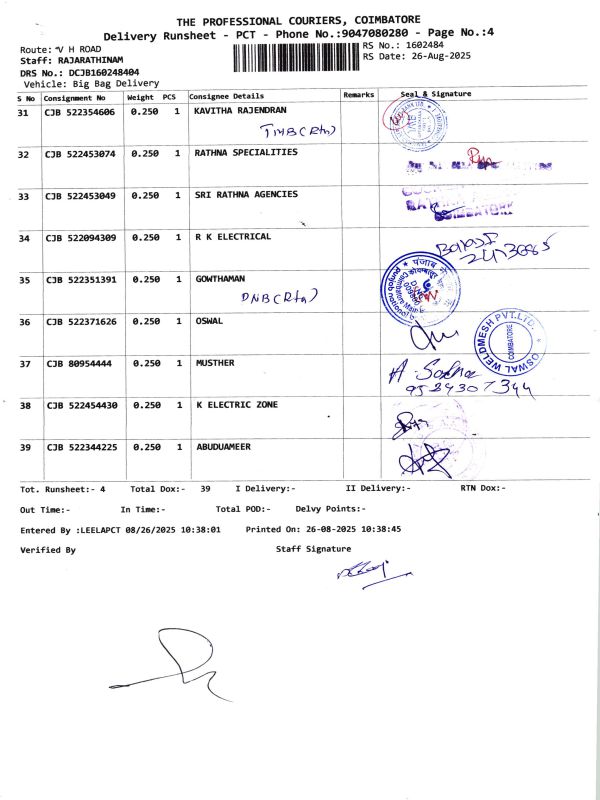 THE PROFESSIONAL COURIERS, COIMBATORE
Delivery Runsheet - PCT - Phone No.:9047080280 - Page No.:4
Route: V H ROAD
RS No.: 1602484
Staff: RAJARATHINAM
RS Date: 26-Aug-2025
DRS No.: DCJB160248404
Vehicle: Big Bag Delivery
S No Consignment No Weight PCS Consignee Details Remarks Seal & Signature
31 CJB 522354606 0.250 1 KAVITHA RAJENDRAN
TMB(Rtn)
32 CJB 522453074 0.250 1 RATHNA SPECIALITIES
33 CJB 522453049 0.250 1 SRI RATHNA AGENCIES
COIMBATORE
34 CJB 522094309 0.250 1 R K ELECTRICAL
35 CJB 522351391 0.250 1 GOWTHAMAN
PNB(Rtn)
36 CJB 522371626 0.250 1 OSWAL
OSWAL WELDMESH PVT.LTD.
COIMBATORE
37 CJB 80954444 0.250 1 MUSTHER
38 CJB 522454430 0.250 1 K ELECTRIC ZONE
39 CJB 522344225 0.250 1 ABUDUAMEER
Tot. Runsheet:- 4 Total Dox:- 39 I Delivery:- II Delivery:- RTN Dox:-
Out Time:- In Time:- Total POD:- Delvy Points:-
Entered By :LEELAPCT 08/26/2025 10:38:01 Printed On: 26-08-2025 10:38:45
Verified By Staff Signature